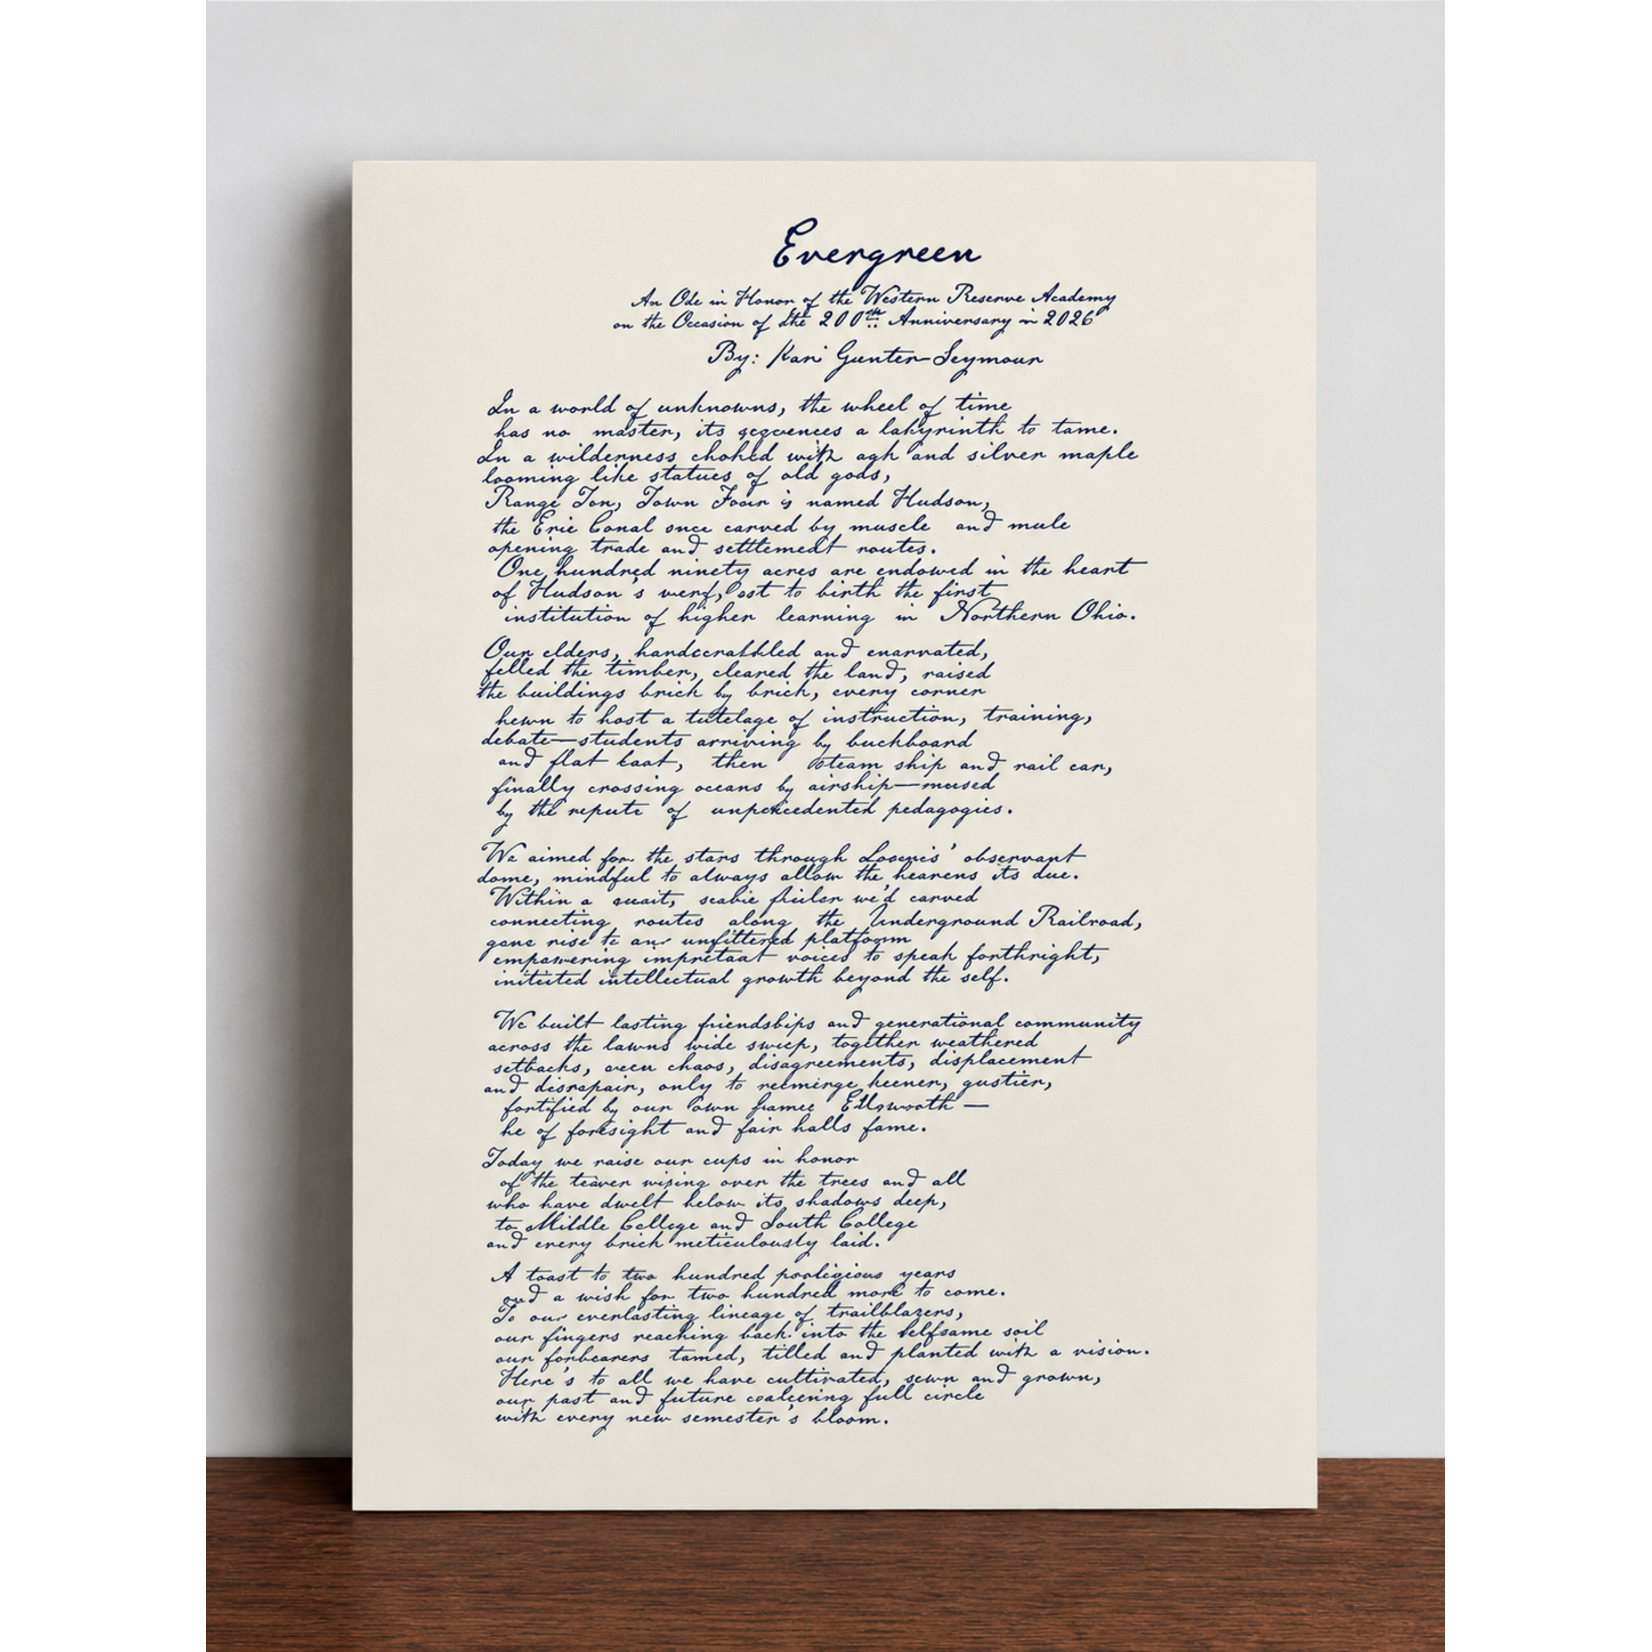 Evergreen
An Ode in Honor of the Western Reserve Academy
on the Occasion of the 200th Anniversary in 2026
By: Kari Gunter-Seymour
In a world of unknowns, the wheel of time
has no master, its a labyrinth to tame.
In a wilderness with and silver maple
looming like statues of old gods,
Range Ton, Town is named Hudson,
the Erie Conal once carved by muscle and mule
opening trade and routes.
One hundred ninety acres are endowed in the heart
of Hudson's to birth the first
institution of higher learning in Northern Ohio.
Our elders, and
felled the timber, cleared the land, raised
the buildings brick by brick, every corner
hewn to host a tutelage of instruction, training,
debate—students arriving by buckboard
and flat then steam ship and rail car,
finally crossing oceans by airship—
by the repute of pedagogies.
We aimed for the stars through observant
dome, mindful to always allow the its due.
Within a we'd carved
connecting routes along the Underground Railroad,
rise unfittered
empowering voices to speak forthright,
intellectual growth beyond the self.
We built lasting friendships and generational community
across the lawns wide together weathered
setbacks, chaos, disagreements, displacement
and only to keener, gustier,
fortified by our own
he of foresight and fair halls fame.
Today we raise our cups in honor
of the over the trees and all
who have dwelt below its shadows deep,
to and South College
and every brick meticulously laid.
A toast to two hundred years
and a wish for two hundred more to come.
To our everlasting lineage of trailblazers,
our fingers reaching back into the soil
our forbearers tamed, tilled and planted with a vision.
Here's to all we have cultivated, sewn and grown,
our past and future full circle
with every new semester's bloom.